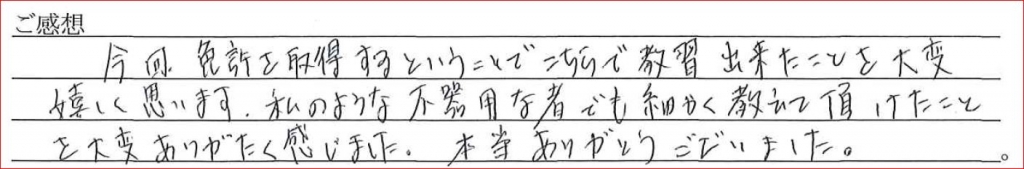 ご感想
今回、免許を取得するということでこちらで教習出来たことを大変
嬉しく思います。私のような不器用な者でも細かく教えて頂けたこと
を大変ありがたく感じました。本当ありがとうございました。
。